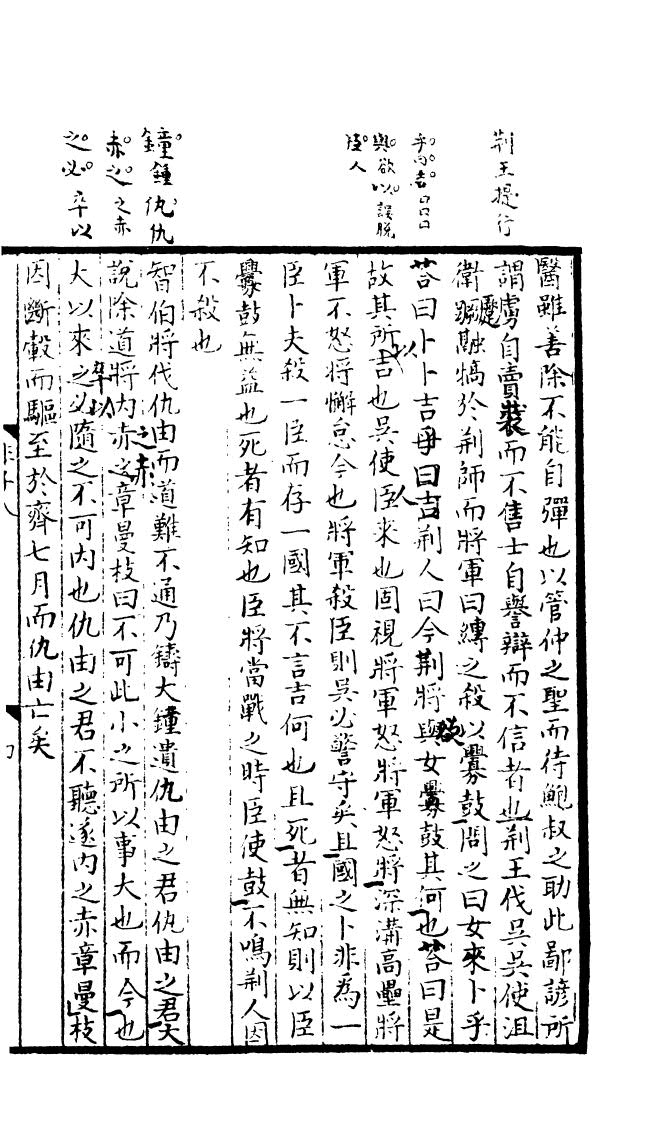 荆王提行
乎而吉口口口
與欲以誤脫
臣人
鐘鍾仇仇
赤之之赤
之必卒以
醫雖善除不能自彈也以管仲之聖而待鮑叔之助此鄙諺所
謂虜自賣裘而不售士自譽辯而不信者也荆王伐吳吳使沮
衛蹷融犒於荆師而將軍曰縛之殺以釁鼓問之曰女來卜乎
荅曰卜卜吉乎曰吉荆人曰今荆將與女釁鼓其何也荅曰是
故其所吉也吳使臣來也固視將軍怒將軍怒將深溝高壘將
軍不怒將懈怠今也將軍殺臣則吳必警守矣且國之卜非為一
臣卜夫殺一臣而存一國其不言吉何也且死者無知則以臣
釁鼓無益也死者有知也臣將當戰之時臣使鼓不鳴荆人因
不殺也
智伯將伐仇由而道難不通乃鑄大鐘遺仇由之君仇由之君大
說除道將內赤之章曼枝曰不可此小之所以事大也而今也
大以來之必隨之不可內也仇由之君不聽遂內之赤章曼枝
因斷轂而驅至於齊七月而仇由亡矣